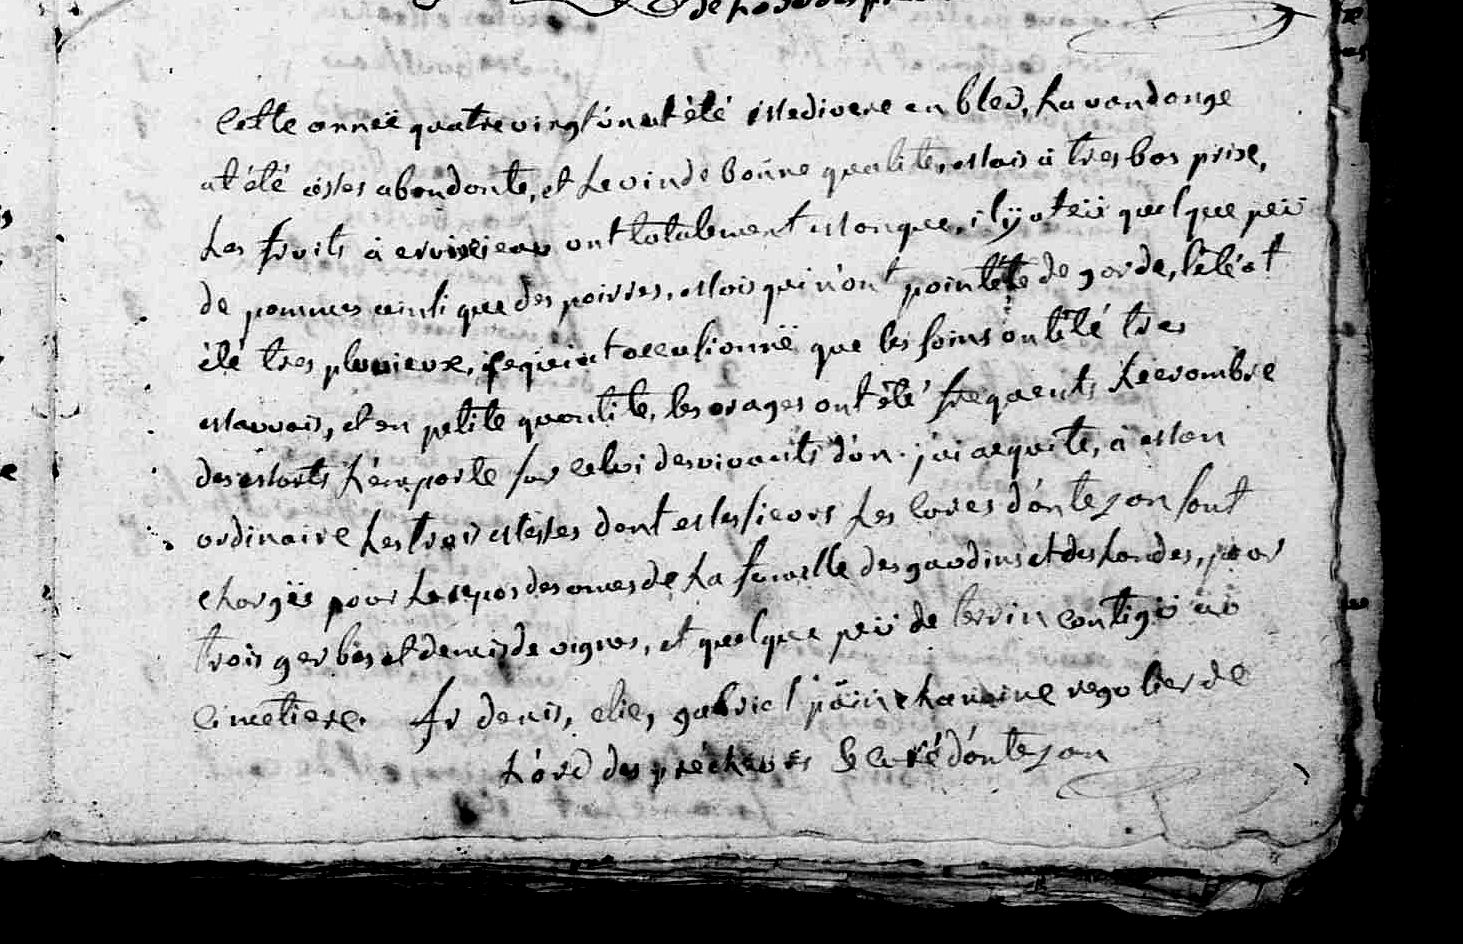 de Lord des pre
Cette anneë quatrevingt ún at été mediocre en bled, La vandange
at été asses abondante, et Le vin de bonne qualite, mais á tres bas prix,
Les fruits á ont totalement manque, il ÿ at eü quelque peü
de pommes ainsi que des poirres, mais qui n'ont point été de garde, l'été at
été tres pluvieux, ce qui at occasionnë que les foins ont été tres
mauvais, et en petite quantite, les orages ont été frequents Le nombre
des morts L'emporte sur celui des vivants d'ún. j'ai acquite, á mon
ordinaire Les trois messes dont messieurs Les cures d'antezan sont
chargës pour Le repos des ames de La famille des gaudins et des Landes, pour
trois gerbes et demis de vignes, et quelque peü de terrin contigü aú
Cimetiere. fr denis, elie, gabriel chanoine regulier de
L'ord des précheurs Curé d'antezan